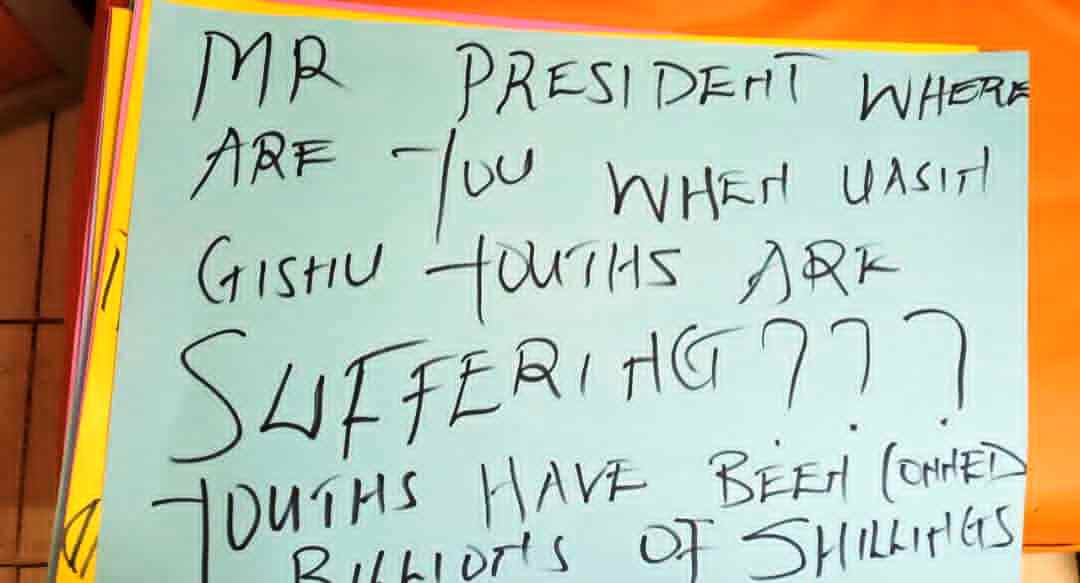 MR PRESIDENT WHERE
ARE YOU WHEN UASIN
GISHU YOUTHS ARE
SUFFERING???
YOUTHS HAVE BEEN CONNED
BILLIONS OF SHILLINGS